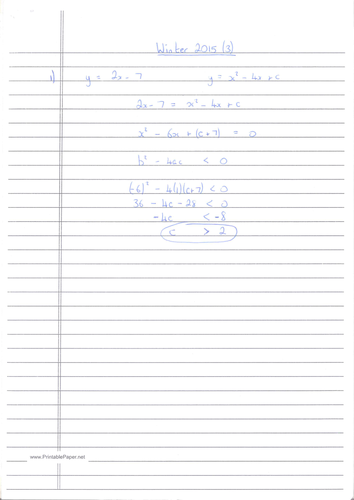 Winter 2015 (3)
1) y = 2x - 7 y = x² - 4x + c
2x - 7 = x² - 4x + c
x² - 6x + (c + 7) = 0
b² - 4ac < 0
(-6)² - 4(1)(c+7) < 0
36 - 4c - 28 < 0
-4c < -8
c > 2
www.PrintablePaper.net